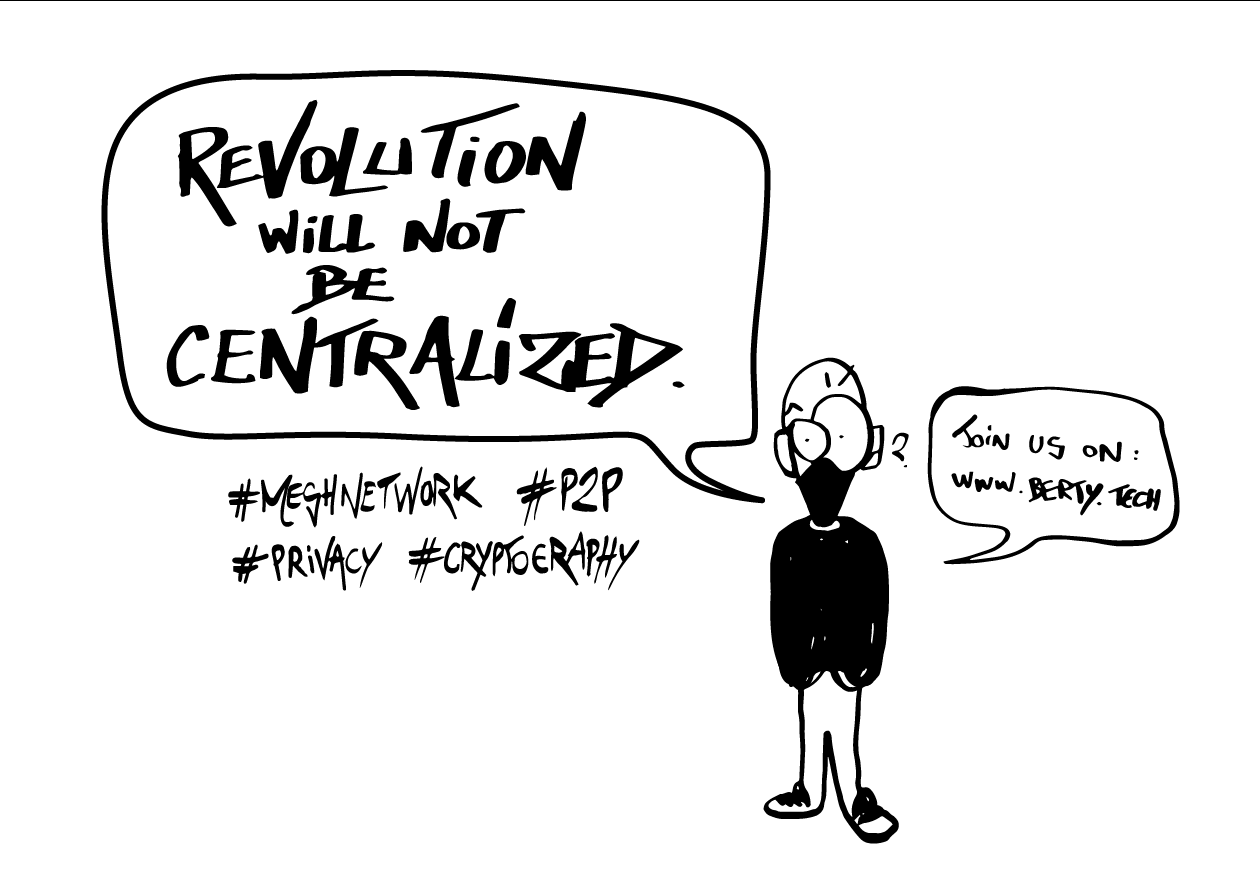 REVOLUTiON
WiLL NOT
BE
CENTRALiZED.
#MESHNETWORK #P2P
#PRiVACY #CRYPTOGRAPHY
?
JOiN US ON:
WWW.BERTY.TECH